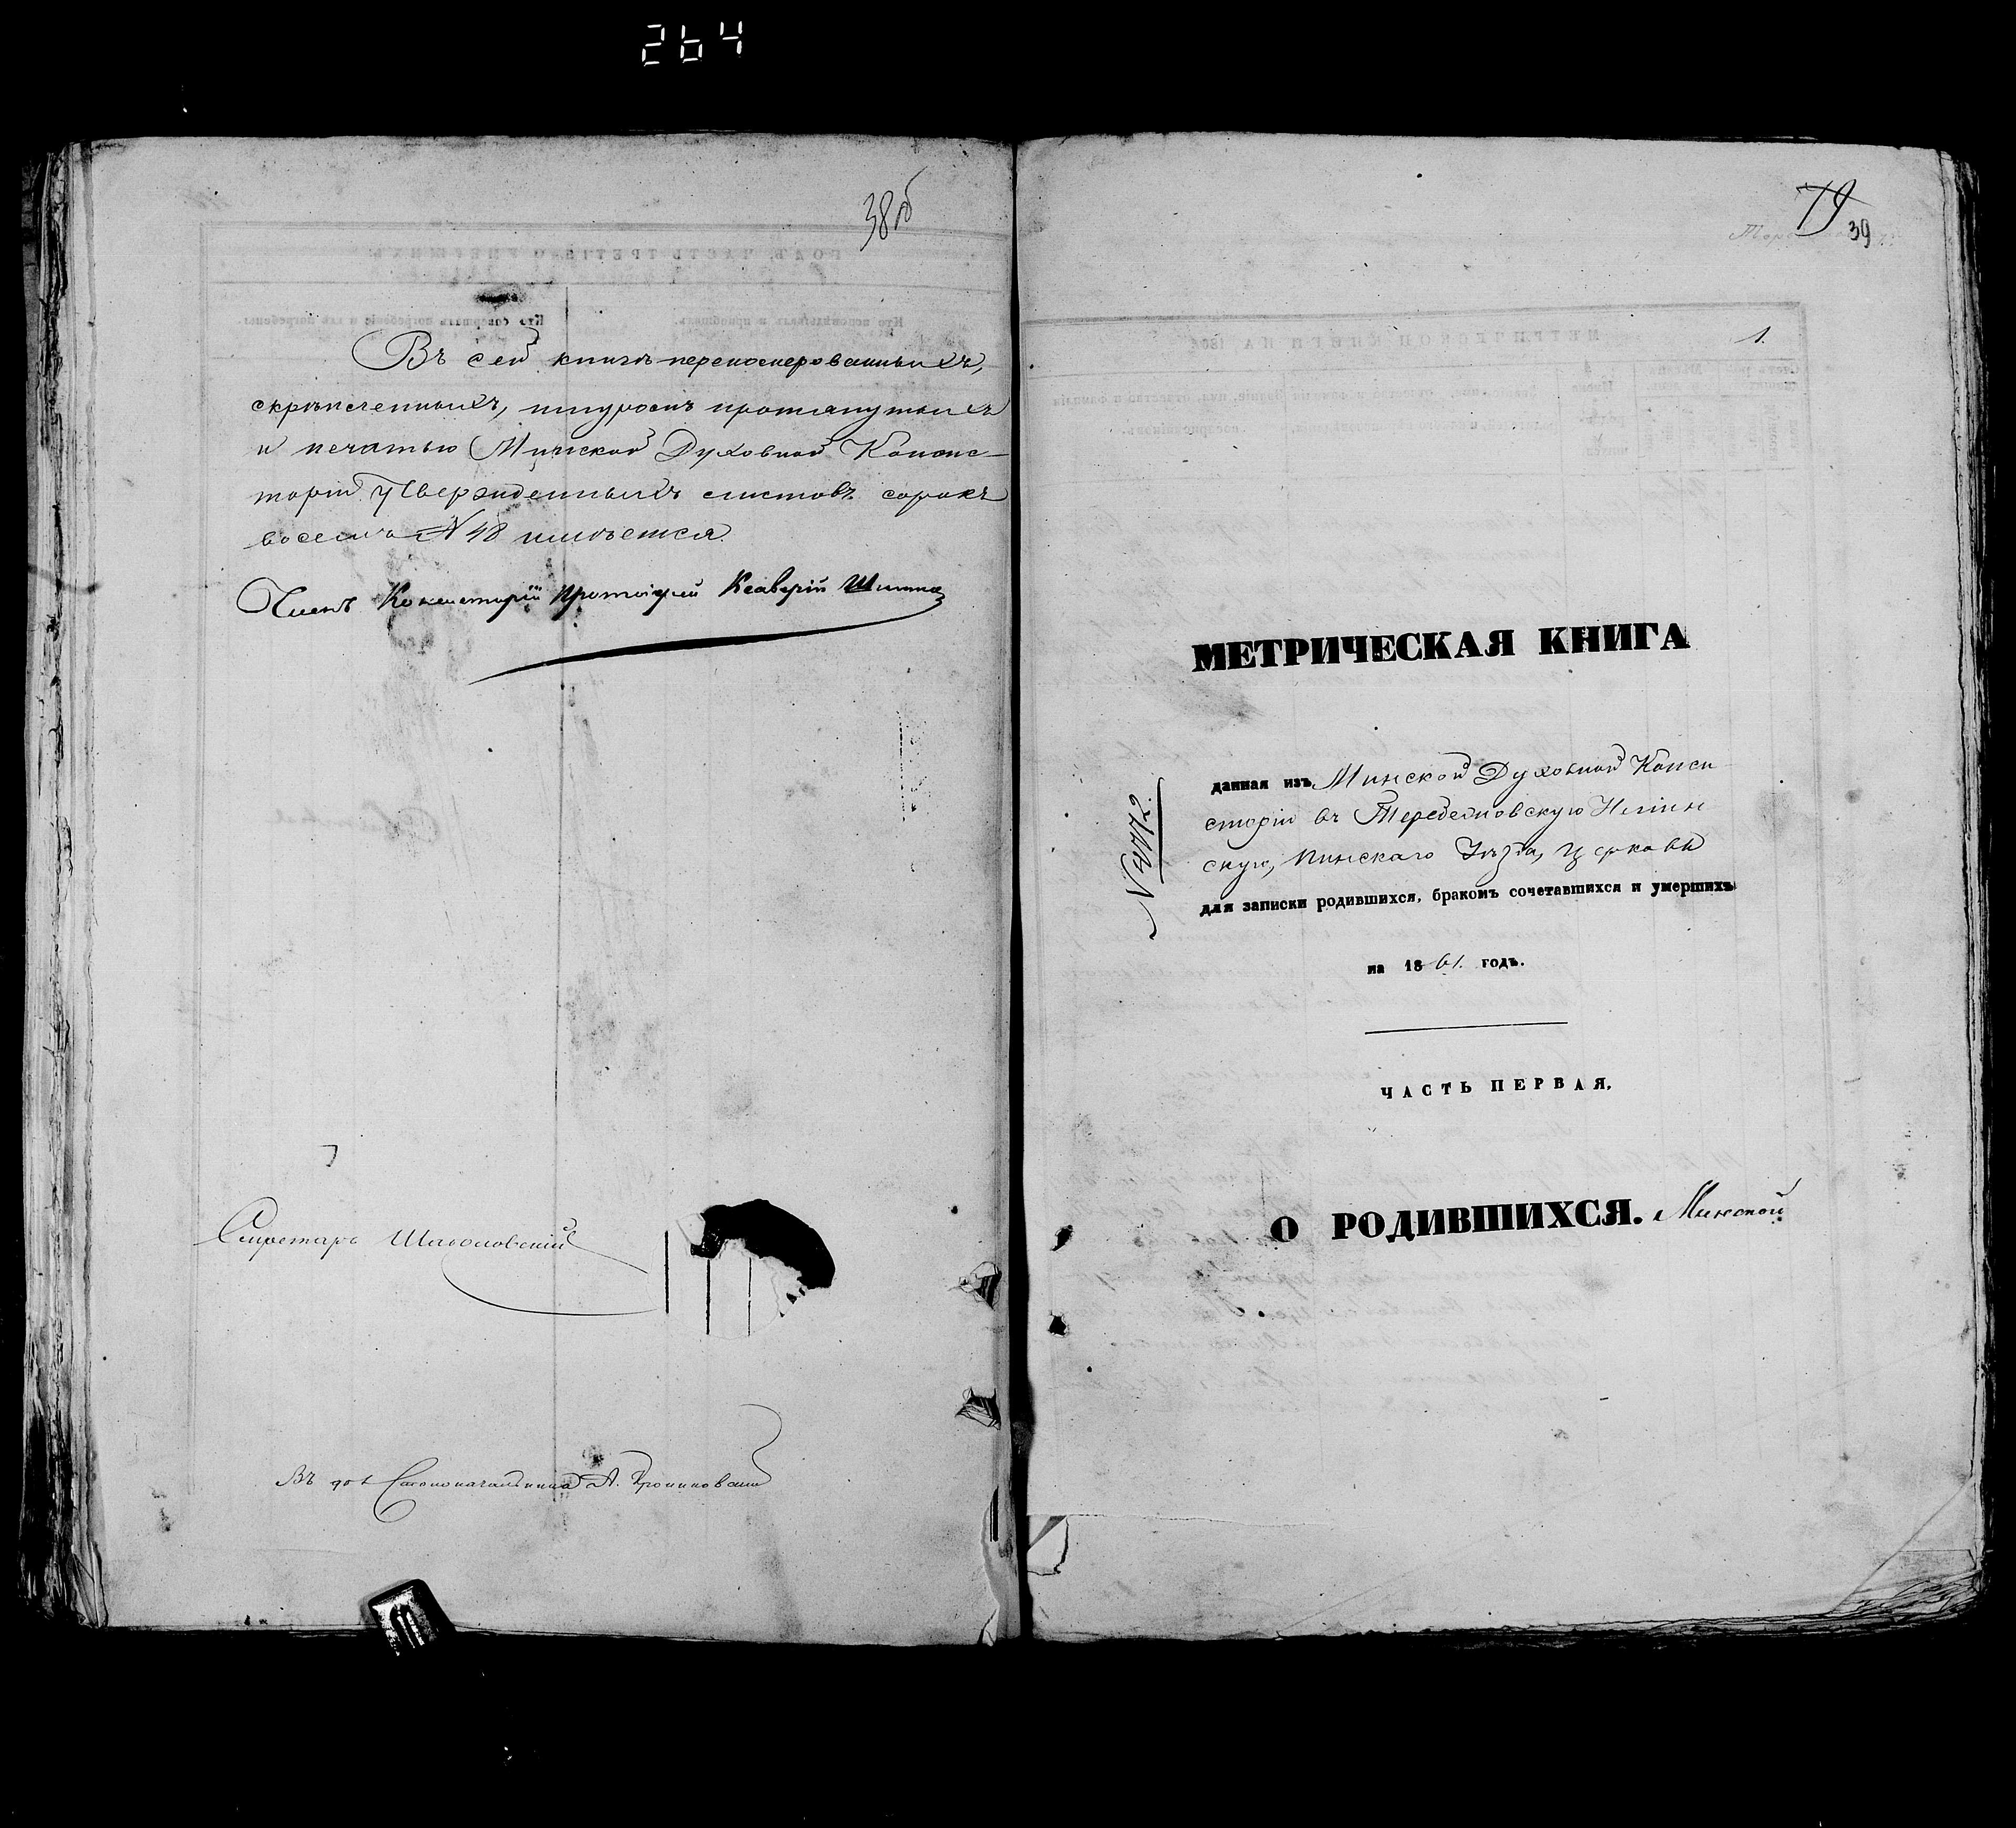 264
38об
Въ сей книгѣ переномерованныхъ,
скрѣпленныхъ, шнуромъ протянутыхъ
и печатью Минской Духовной Консис-
торіи утвержденныхъ листовъ сорокъ
восемь N 48 имѣется.
Членъ Консисторіи Протоіерей Ксаверій
Секретарь
Въ дол. Столоначальника А.
39
1.
МЕТРИЧЕСКАЯ КНИГА
данная изъ Минской Духовной Конси
сторіи въ Теребежовскую
скую, Пинскаго Уѣзда, церковь
для записки родившихся, бракомъ сочетавшихся и умершихъ
на 1861. годъ.
ЧАСТЬ ПЕРВАЯ,
О РОДИВШИХСЯ. Минской